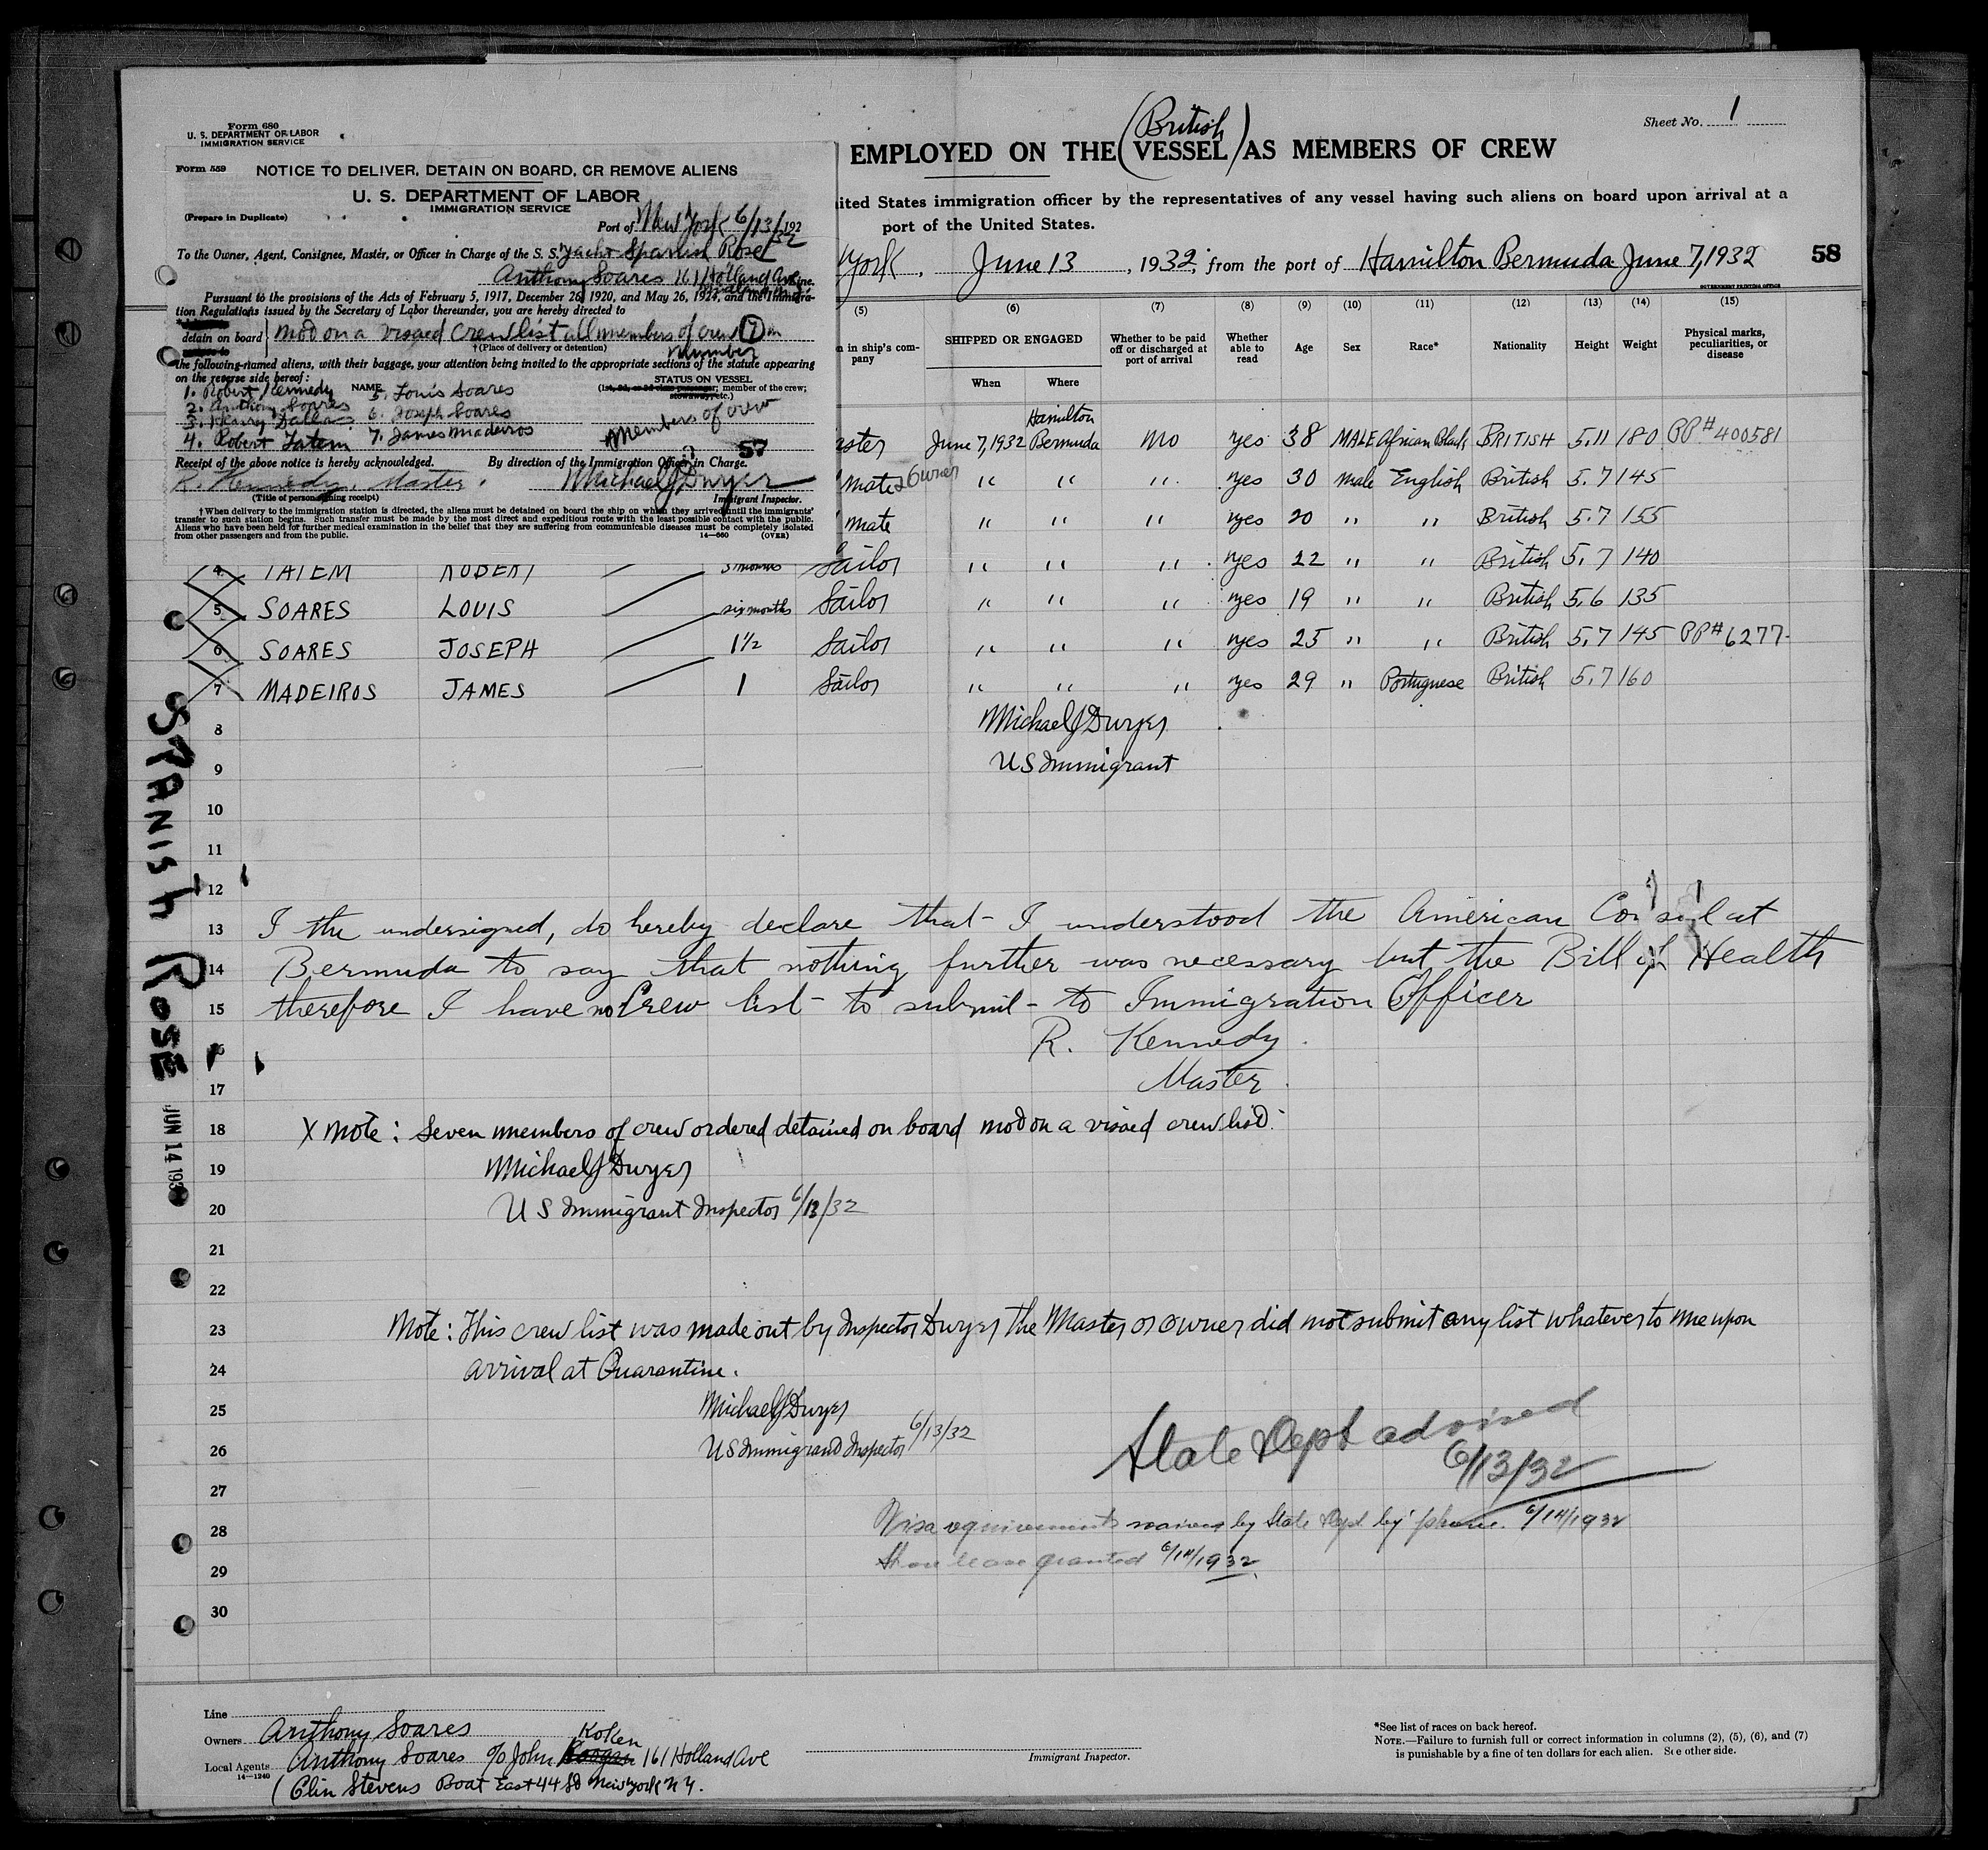 Form 680
U. S. DEPARTMENT OF LABOR
IMMIGRATION SERVICE
Form 559
NOTICE TO DELIVER, DETAIN ON BOARD, OR REMOVE ALIENS
U. S. DEPARTMENT OF LABOR
IMMIGRATION SERVICE
(Prepare in Duplicate)
Port of New York 6/13/192 32
To the Owner, Agent, Consignee, Master, or Officer in Charge of the S. S. Yacht Spanish Rose
Anthony Soares 161 Holland Ave Line.
Pursuant to the provisions of the Acts of February 5, 1917, December 26, 1920, and May 26, 1924, and the Immigra-
tion Regulations issued by the Secretary of Labor thereunder, you are hereby directed to
detain on board } not on a visaed crew list all members of crew 7 in
†(Place of delivery or detention) number
the following-named aliens, with their baggage, your attention being invited to the appropriate sections of the statute appearing
on the reverse side hereof:
NAME
STATUS ON VESSEL
(1st, 2d, or 3d class passenger; member of the crew; stowaway, etc.)
1. Robert Kennedy 5. Louis Soares
2. Anthony Soares 6. Joseph Soares
3. Harry Dallas
4. Robert Tatem 7. James Madeiros
Members of crew
57
Receipt of the above notice is hereby acknowledged. By direction of the Immigration Officer in Charge.
R. Kennedy, Master. Michael J Dwyer
(Title of person signing receipt) Immigrant Inspector.
†When delivery to the immigration station is directed, the aliens must be detained on board the ship on which they arrived until the immigrants'
transfer to such station begins. Such transfer must be made by the most direct and expeditious route with the least possible contact with the public.
Aliens who have been held for further medical examination in the belief that they are suffering from communicable diseases must be completely isolated
from other passengers and from the public.
14—660 (OVER)
Sheet No. 1
(British)
EMPLOYED ON THE (VESSEL) AS MEMBERS OF CREW
ited States immigration officer by the representatives of any vessel having such aliens on board upon arrival at a
port of the United States.
York, June 13, 1932, from the port of Hamilton Bermuda June 7, 1932 58
GOVERNMENT PRINTING OFFICE
(5) (6) (7) (8) (9) (10) (11) (12) (13) (14) (15)
n in ship's com-pany SHIPPED OR ENGAGED When Where Whether to be paid off or discharged at port of arrival Whether able to read Age Sex Race* Nationality Height Weight Physical marks, peculiarities, or disease
ster June 7, 1932 Hamilton Bermuda No yes 38 MALE African Black BRITISH 5.11 180 PP# 400581
mate & Owner " " " yes 30 male English British 5.7 145
mate " " " yes 20 " " British 5.7 155
4 TATEM ROBERT Sailor " " " yes 22 " " British 5.7 140
5 SOARES LOUIS six months Sailor " " " yes 19 " " British 5.6 135
6 SOARES JOSEPH 1½ Sailor " " " yes 25 " " British 5.7 145 PP# 6277
7 MADEIROS JAMES 1 Sailor " " " yes 29 " Portuguese British 5.7 160
8 Michael J Dwyer
9 US Immigrant
10
11
12
13 I the undersigned, do hereby declare that I understood the American Consul at
14 Bermuda to say that nothing further was necessary but the Bill of Health
15 therefore I have no Crew list to submit to Immigration Officer
16 R. Kennedy
17 Master
18 X Note: Seven members of crew ordered detained on board not on a visaed crew list.
19 Michael J Dwyer
20 U S Immigrant Inspector 6/13/32
21
22
23 Note: This crew list was made out by Inspector Dwyer The Master or owner did not submit any list whatever to me upon
24 arrival at Quarantine.
25 Michael J Dwyer
26 US Immigrant Inspector 6/13/32
State Dept advised
6/13/32
27
28 Visa requirements waived by State Dept by phone. 6/14/1932
29 Shore leave granted 6/14/1932
30
SPANISH ROSE
JUN 14 193
Line
Owners Anthony Soares
Local Agents Anthony Soares c/o John Koken 161 Holland Ave
14—1240
(Elin Stevens Boat East 44 St New York N Y.
Immigrant Inspector.
*See list of races on back hereof.
NOTE.—Failure to furnish full or correct information in columns (2), (5), (6), and (7)
is punishable by a fine of ten dollars for each alien. See other side.